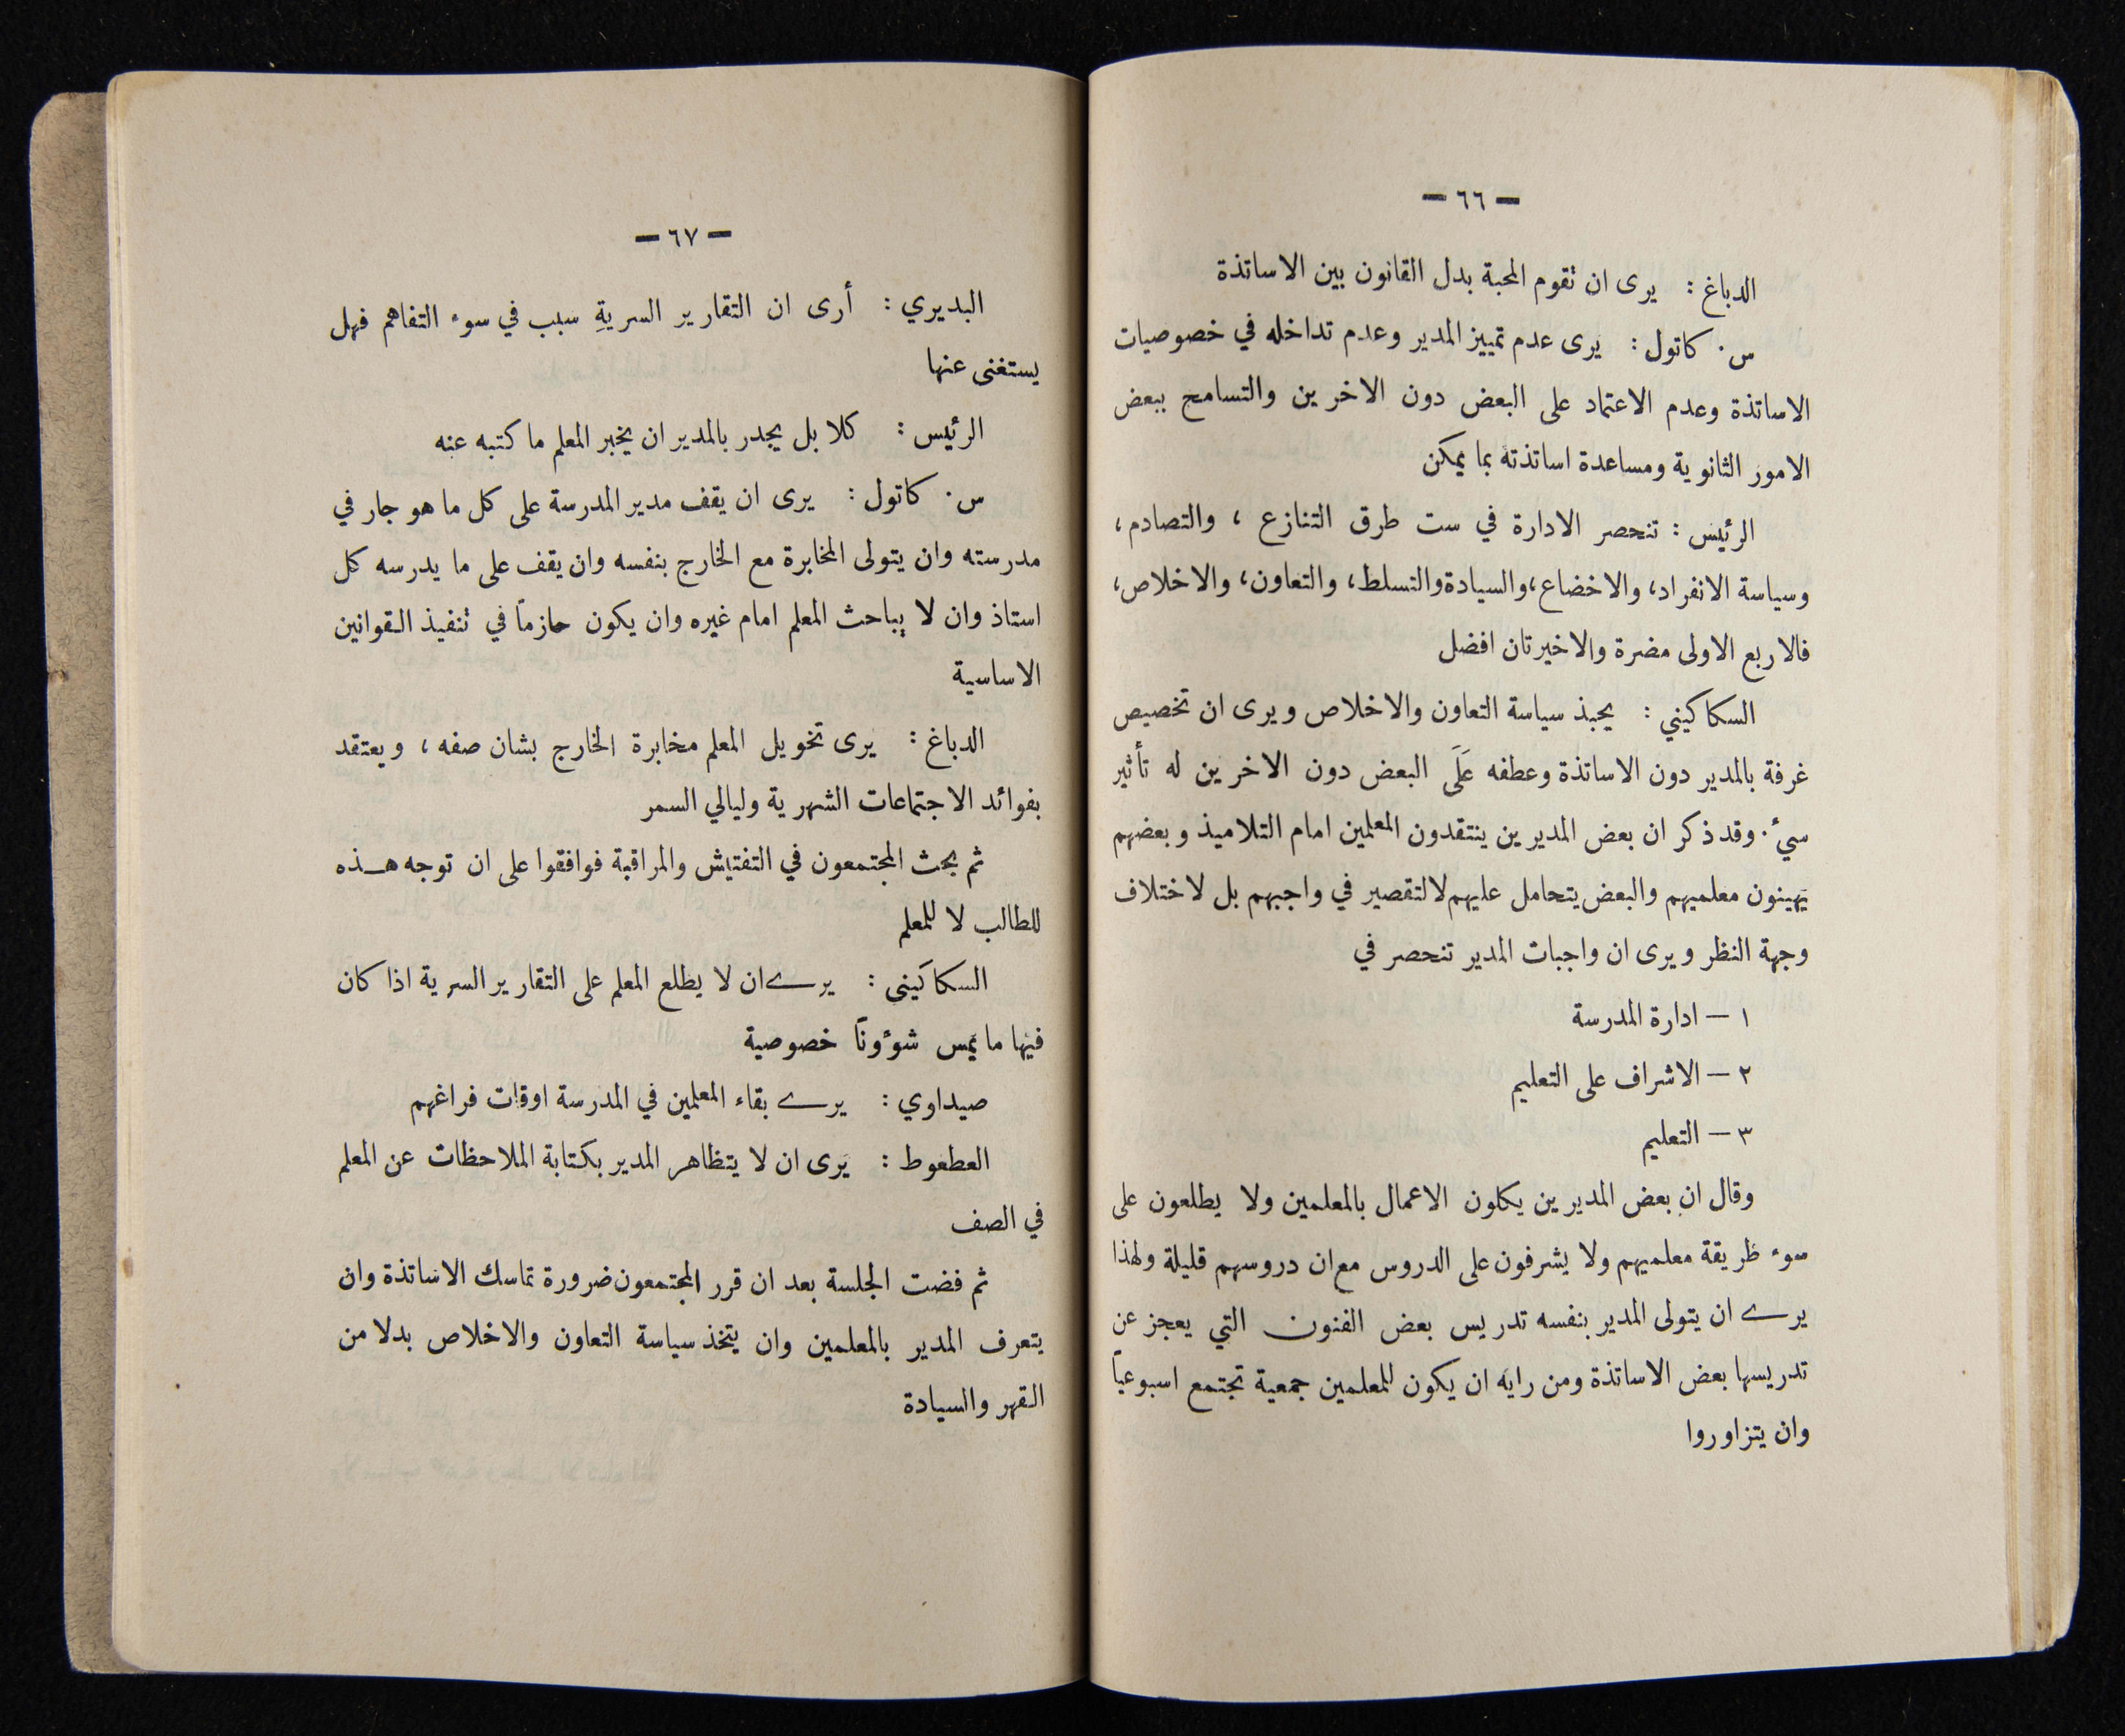 — ٦٦ —
الدباغ : يرى ان تقوم المحبة بدل القانون بين الاساتذة
س. كاتول : يرى عدم تمييز المدير وعدم تداخله في خصوصيات
الاساتذة وعدم الاعتماد على البعض دون الاخرين والتسامح ببعض
الامور الثانوية ومساعدة اساتذته بما يمكن
الرئيس : تنحصر الادارة في ست طرق التنازع ، والتصادم ،
وسياسة الانفراد، والاخضاع، والسيادة والتسلط، والتعاون، والاخلاص،
فالاربع الاولى مضرة والاخيرتان افضل
السكاكيني : يحبذ سياسة التعاون والاخلاص ويرى ان تخصيص
غرفة بالمدير دون الاساتذة وعطفه عَلَى البعض دون الاخرين له تأثير
سيء. وقد ذكر ان بعض المديرين ينتقدون المعلمين امام التلاميذ وبعضهم
يهينون معلميهم والبعض يتحامل عليهم لا لتقصير في واجبهم بل لاختلاف
وجهة النظر ويرى ان واجبات المدير تنحصر في
١ — ادارة المدرسة
٢ — الاشراف على التعليم
٣ — التعليم
وقال ان بعض المديرين يكلون الاعمال بالمعلمين ولا يطلعون على
سوء طريقة معلميهم ولا يشرفون على الدروس مع ان دروسهم قليلة ولهذا
يرى ان يتولى المدير بنفسه تدريس بعض الفنون التي يعجز عن
تدريسها بعض الاساتذة ومن رايه ان يكون للمعلمين جمعية تجتمع اسبوعياً
وان يتزاوروا
— ٦٧ —
البديري : أرى ان التقارير السريةِ سبب في سوء التفاهم فهل
يستغنى عنها
الرئيس : كلا بل يجدر بالمدير ان يخبر المعلم ما كتبه عنه
س. كاتول : يرى ان يقف مدير المدرسة على كل ما هو جار في
مدرسته وان يتولى المخابرة مع الخارج بنفسه وان يقف على ما يدرسه كل
استاذ وان لا يباحث المعلم امام غيره وان يكون حازماً في تنفيذ القوانين
الاساسية
الدباغ : يرى تخويل المعلم مخابرة الخارج بشان صفه ، ويعتقد
بفوائد الاجتماعات الشهرية وليالي السمر
ثم بحث المجتمعون في التفتيش والمراقبة فوافقوا على ان توجه هـذه
للطالب لا للمعلم
السكاكينى : يرى ان لا يطلع المعلم على التقارير السرية اذا كان
فيها ما يمس شؤوناً خصوصية
صيداوي : يرى بقاء المعلمين في المدرسة اوقات فراغهم
العطعوط : يرى ان لا يتظاهر المدير بكتابة الملاحظات عن المعلم
في الصف
ثم فضت الجلسة بعد ان قرر المجتمعون ضرورة تماسك الاساتذة وان
يتعرف المدير بالمعلمين وان يتخذ سياسة التعاون والاخلاص بدلا من
القهر والسيادة